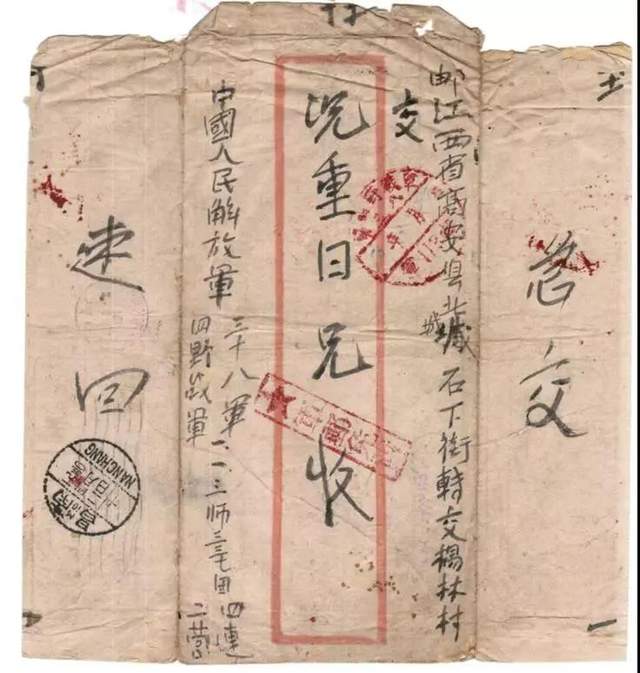 急交
邮江西省高安县北城石下街轉交楊林村
交
况重日兄收
中國人民解放軍
三十八軍一一三师三三七团四連
四野战軍
二营
速回
南昌
NANCHANG